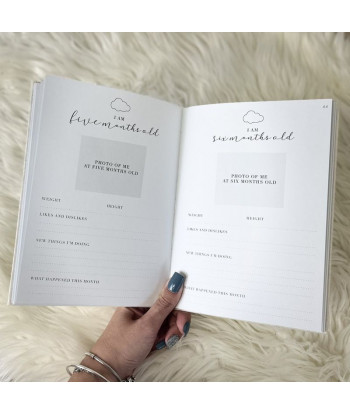 I AM
five months old
PHOTO OF ME
AT FIVE MONTHS OLD
WEIGHT HEIGHT
LIKES AND DISLIKES
NEW THINGS I'M DOING
WHAT HAPPENED THIS MONTH
I AM
six months old
PHOTO OF ME
AT SIX MONTHS OLD
WEIGHT HEIGHT
LIKES AND DISLIKES
NEW THINGS I'M DOING
WHAT HAPPENED THIS MONTH